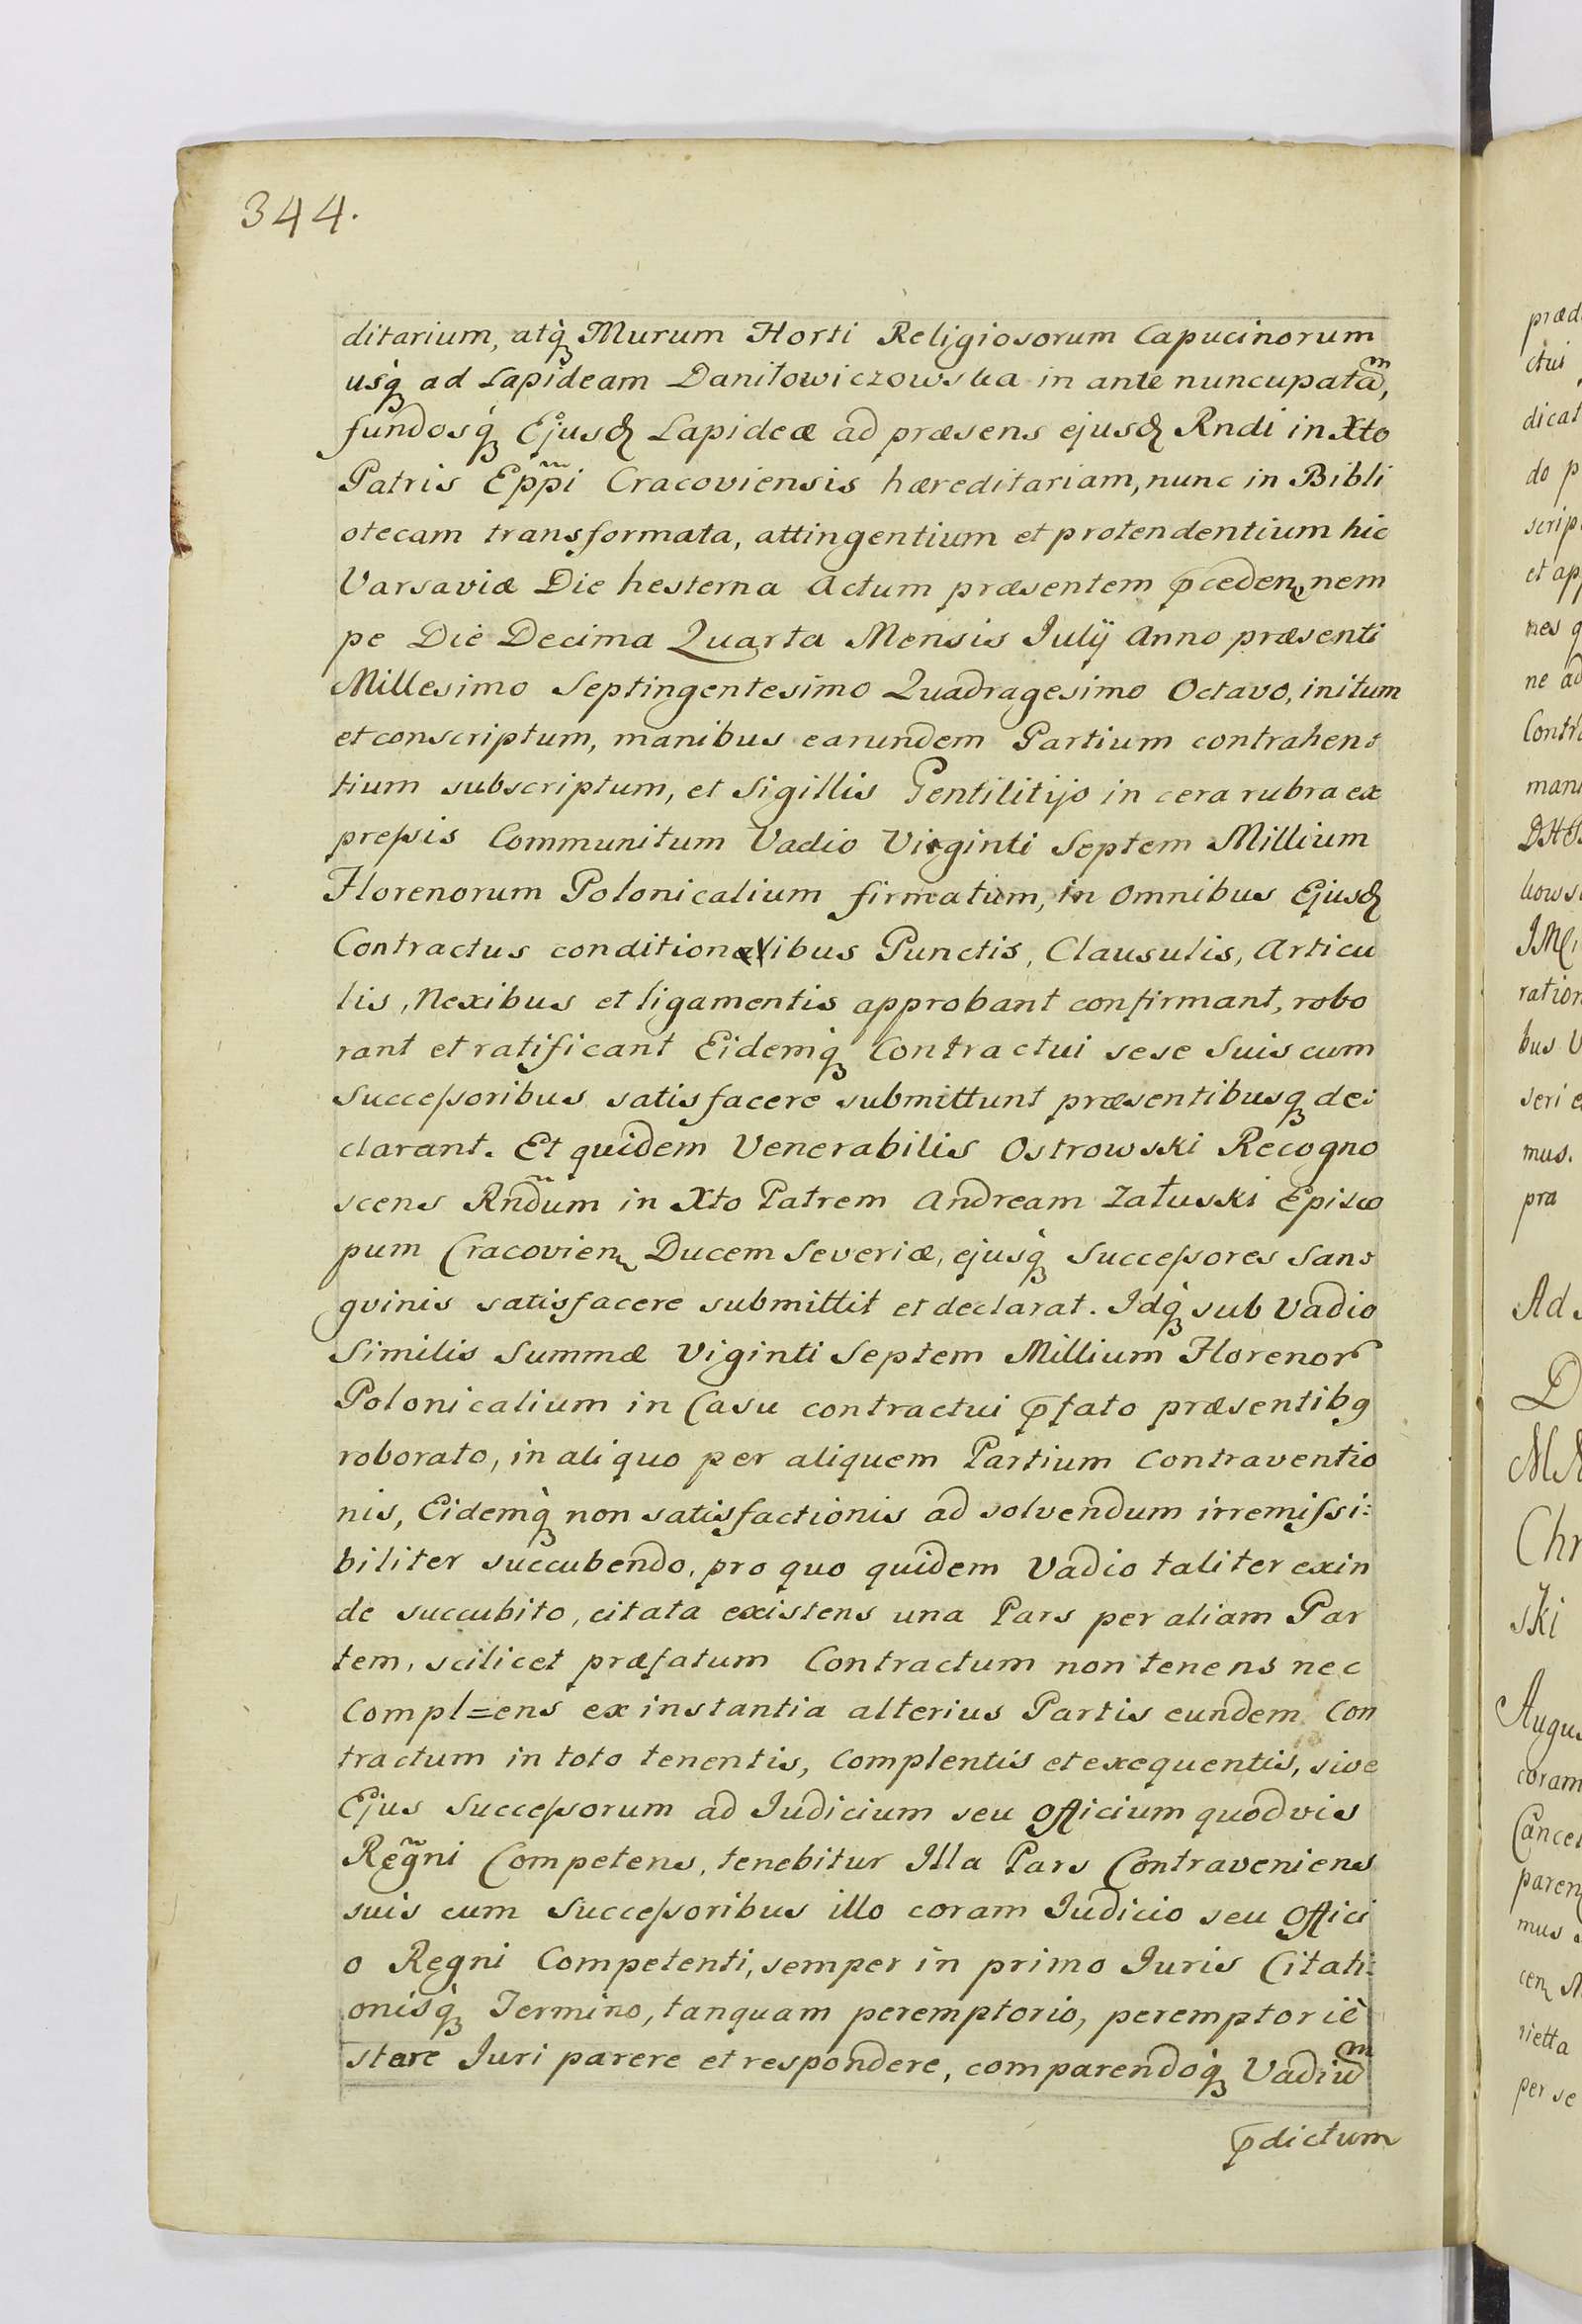 344.
ditarium, atq̀ꝫ Murum Horti Religiosorum Capucinorum
usq̀ꝫ ad Lapideam Daniłowiczowska in ante nuncupatam̃,
fundosq́ꝫ Ejusđ Lapideæ ad præsens ejusđ Rndi in Xto
Patris Epp̃i Cracoviensis hæreditariam, nunc in Bibli
otecam transformata, attingentium et protendentium hic
Varsaviæ Die hesterna Actum præsentem p̄ceden nem
pe Die Decima Quarta Mensis Julÿ Anno præsenti
Millesimo Septingentesimo Quadragesimo Octavo, initum
et conscriptum, manibus earundem Partium contrahen:
tium subscriptum, et Sigillis Gentilitijs in cera rubra ex
preſsis Communitum Vadio Viginti Septem Millium
Florenorum Polonicalium firmatum, in omnibus Ejusđ
Contractus conditionibus Punctis, Clausulis, Articu
lis, Nexibus et ligamentis approbant confirmant, robo
rant et ratificant Eidemq̀ꝫ Contractui sese Suis cum
Succeſsoribus satisfacere submittunt præsentibusqꝫ de:
clarant. Et quidem Venerabilis Ostrowski Recogno
scens Rñdum in Xto Patrem Andream Załuski Episco
pum Cracovien Ducem Severiæ, ejusq̀ꝫ Succeſsores San:
gvinis satisfacere submittit et declarat. Idq̀ꝫ sub Vadio
Similis Summæ Viginti Septem Millium Florenor
Polonicalium in Casu contractui p̄fato præsentib9
roborato, in aliquo per aliquem Partium Contraventio
nis, Eidemq̀ꝫ non satisfactionis ad solvendum irremiſsi:
biliter succubendo, pro quo quidem Vadio taliter exin
de succubito, citata existens una Pars per aliam Par
tem, scilicet præfatum Contractum non tenens nec
Compl=ens ex instantia alterius Partis eundem Con
tractum in toto tenentis, complentis et exequentis, sive
Ejus Succeſsorum ad Judicium seu Officium quodvis
Reg̃ni Competens, tenebitur Illa Pars Contraveniens
suis cum Succeſsoribus illo coram Judicio seu Offici
o Regni Competenti, semper in primo Juris Citati:
onisq̀ꝫ Termino, tanquam peremptorio, peremptoriè
stare Juri parere et respondere, comparendoq̀ꝫ Vadium̃
p̄dictum
præd
ctui
dicat
do p
scrip
et app
nes q
ne ad
Contra
mani
kows
ration
bus V
seri e
mus.
pra
Ad
D
Chr
ski
Augus
coram
Cancel
paren
mus
cen
rietta
per se